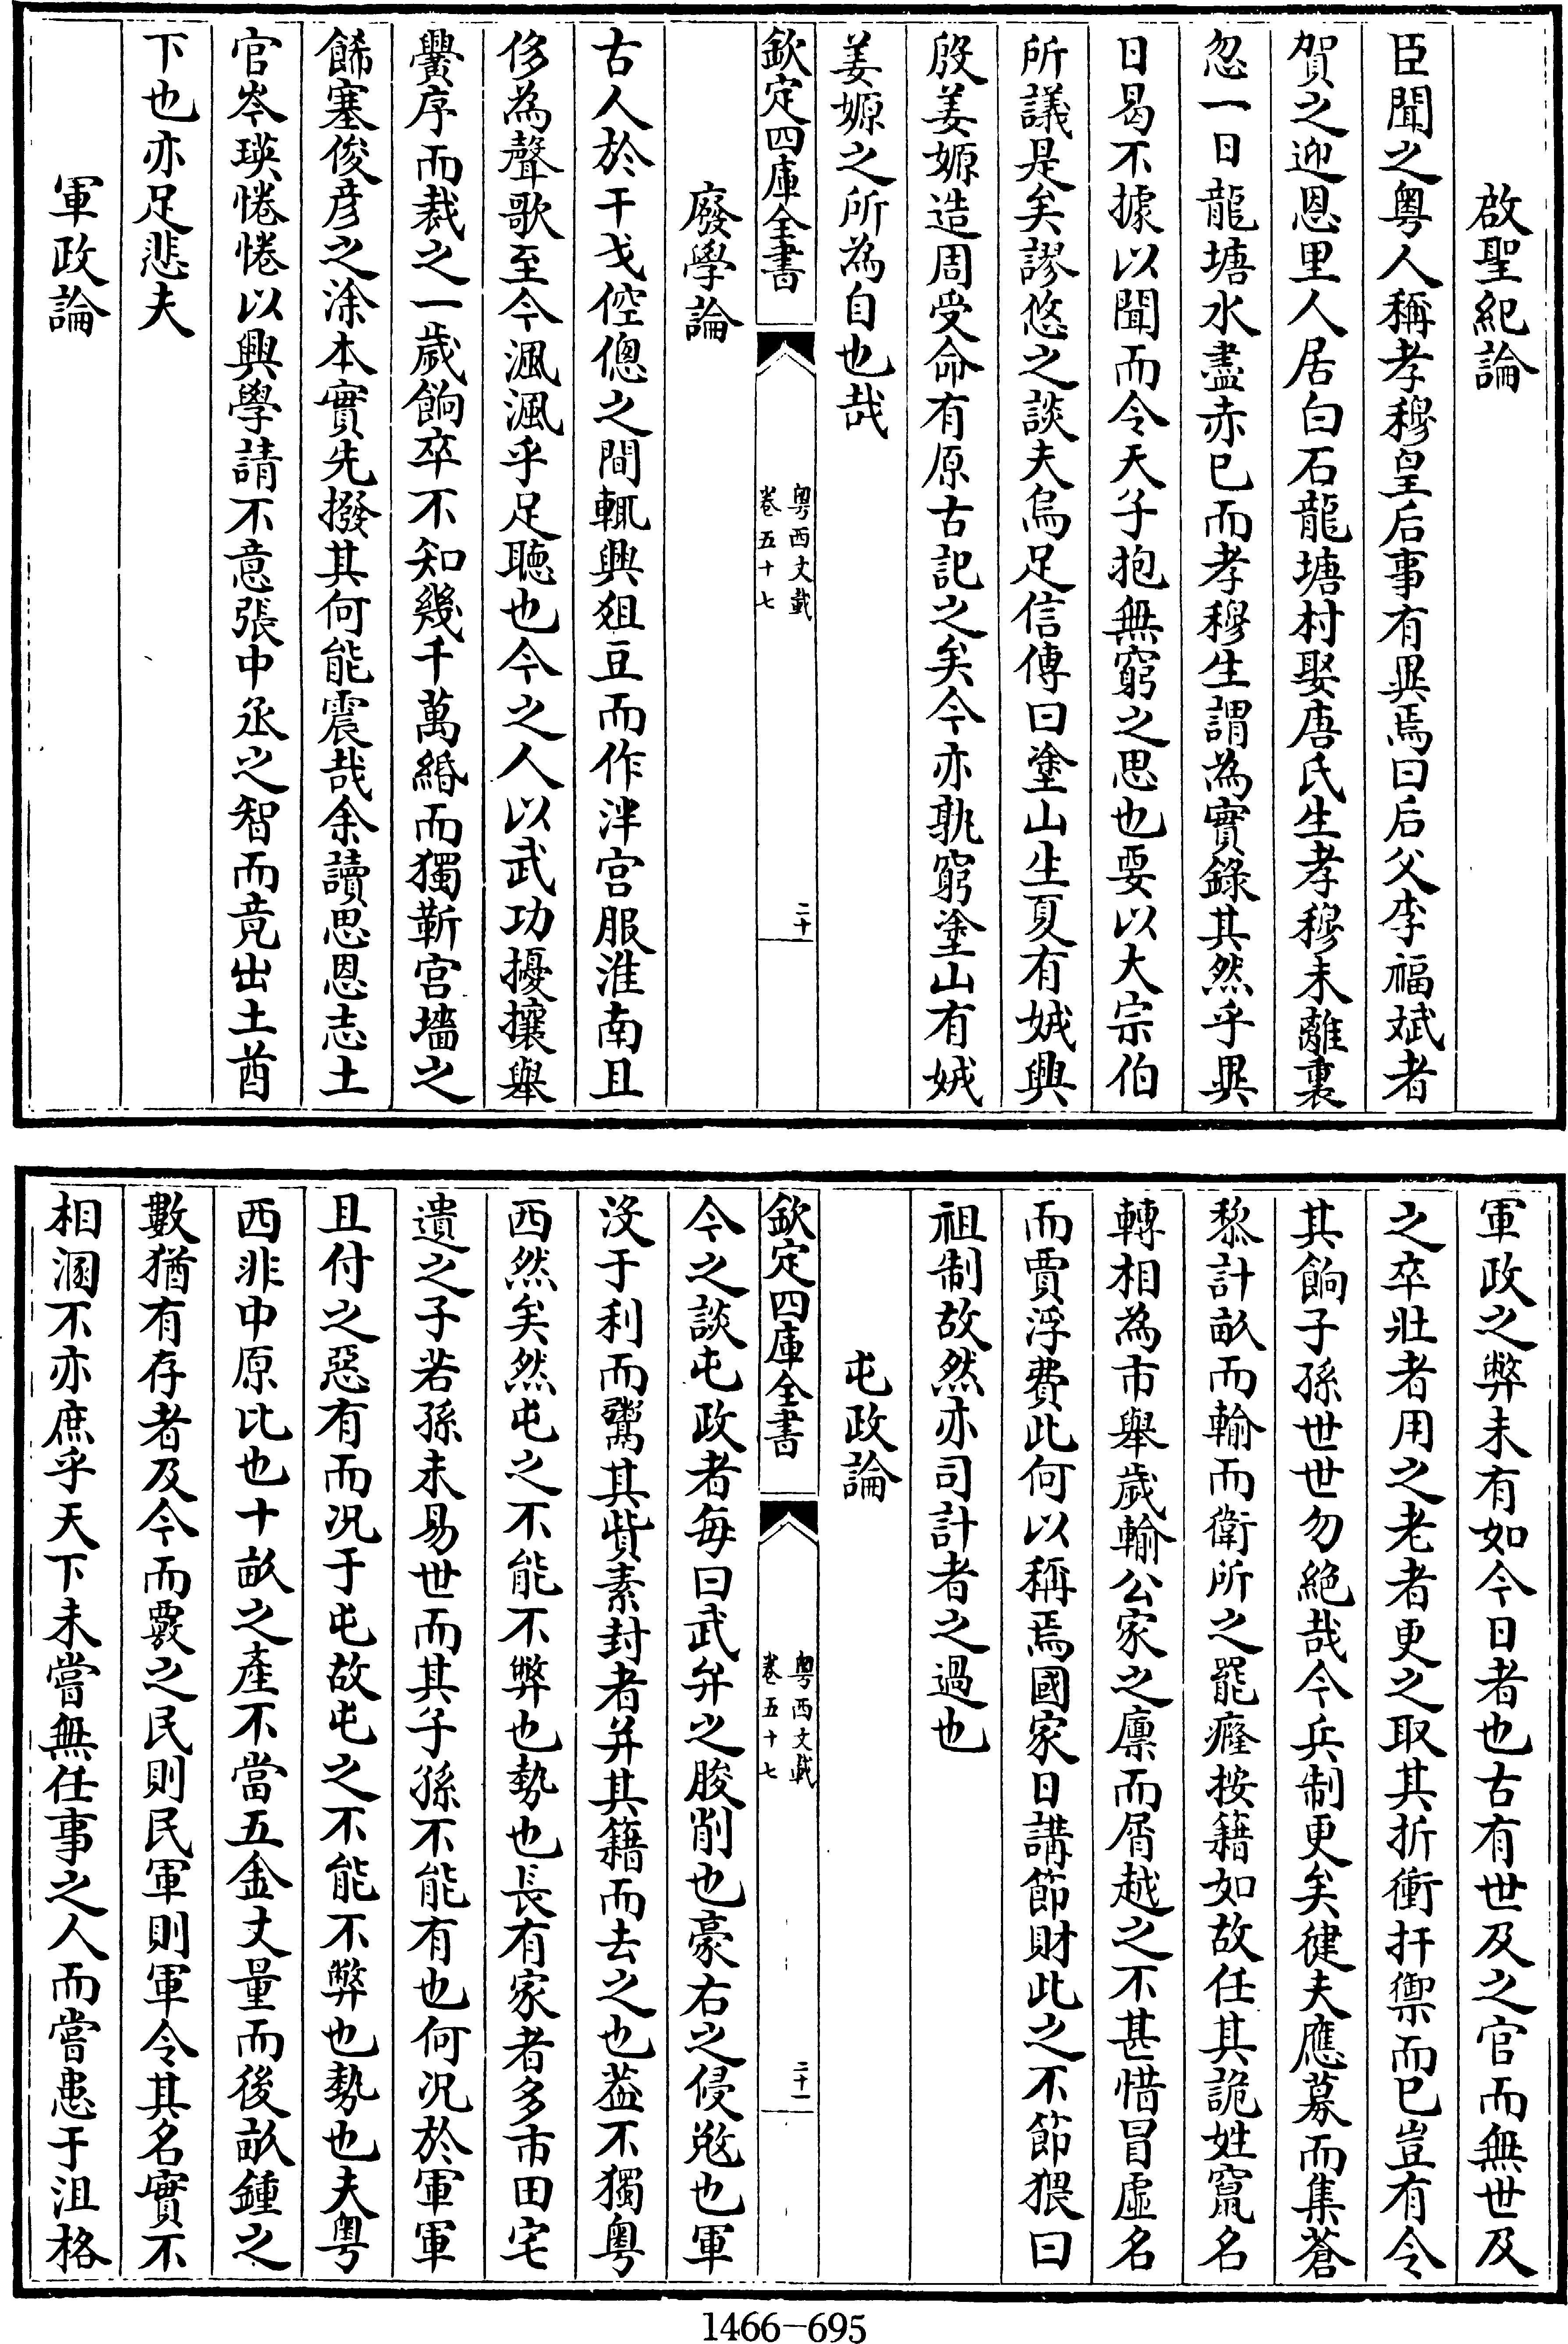 啟聖紀論
臣聞之粵人稱孝穆皇后事有異焉曰后父李福斌者
賀之迎恩里人居白石龍塘村娶唐氏生孝穆未離裏
忽一日龍塘水盡赤已而孝穆生謂為實錄其然乎異
日曷不據以聞而令天子抱無窮之思也要以大宗伯
所議是矣謬悠之談夫烏足信傳曰塗山生夏有娀興
殷姜嫄造周受命有原古記之矣今亦孰窮塗山有娀
姜嫄之所為自也哉
欽定四庫全書
粵西文載
卷五十七
二十
廢學論
古人於干戈倥傯之間輒興俎豆而作泮宮服淮南且
侈為聲歌至今渢渢乎足聽也今之人以武功擾攘舉
黌序而裁之一歲餉卒不知幾千萬緡而獨靳宮墻之
餙塞俊彥之涂本實先撥其何能震哉余讀思恩志土
官岑瑛惓惓以興學請不意張中丞之智而竟出土酋
下也亦足悲夫
軍政論
軍政之弊未有如今日者也古有世及之官而無世及
之卒壯者用之老者更之取其折衝扞禦而已豈有令
其餉子孫世世勿絕哉今兵制更矣健夫應募而集蒼
黎計畝而輸而衛所之罷癃按籍如故任其詭姓竄名
轉相為市舉歲輸公家之廩而屑越之不甚惜冒虛名
而賈浮費此何以稱焉國家日講節財此之不節猥曰
祖制故然亦司計者之過也
屯政論
欽定四庫全書
粵西文載
卷五十七
二十一
今之談屯政者每曰武弁之朘削也豪右之侵敓也軍
沒于利而鬻其貲素封者并其籍而去之也葢不獨粵
西然矣然屯之不能不弊也勢也長有家者多市田宅
遺之子若孫未易世而其子孫不能有也何況於軍軍
且付之惡有而況于屯故屯之不能不弊也勢也夫粵
西非中原比也十畝之產不當五金丈量而後畝鍾之
數猶有存者及今而覈之民則民軍則軍令其名實不
相溷不亦庶乎天下未嘗無任事之人而嘗患于沮格
1466-695